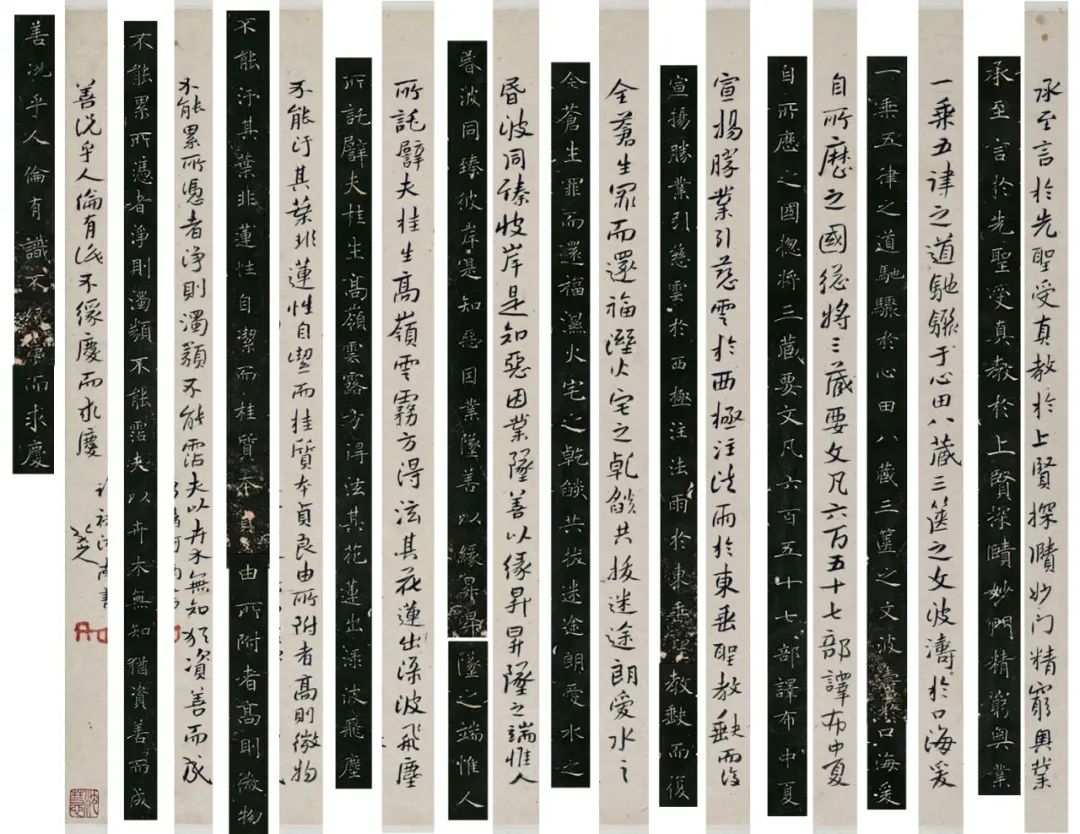 承至言於先聖受真教於上賢探賾妙门精窮奥業
承至言於先聖受真教於上賢探賾妙門精窮奥業
一乘五律之道馳驟于心田八藏三篋之文波濤於口海爰
一乘五律之道馳驟於心田八藏三篋之文波濤於口海爰
自所歷之國總將三藏要文凡六百五十七部譯布中夏
自所歷之國惣將三藏要文凡六百五十七部譯布中夏
宣揚勝業引慈雲於西極注法雨於東垂聖教缺而復
宣揚勝業引慈雲於西極注法雨於東垂聖教缺而復
全蒼生罪而還福溼火宅之乾燄共拔迷途朗愛水之
全蒼生罪而還福濕火宅之乾燄共拔迷途朗愛水之
昏波同臻彼岸是知惡因業墜善以緣昇昇墜之端惟人
昏波同臻彼岸是知惡因業墜善以緣昇昇墜之端惟人
所託譬夫桂生高嶺雲霧方得泫其花蓮出淥波飛塵
所託譬夫桂生高嶺雲露方得泫其花蓮出淥波飛塵
不能汙其葉非蓮性自潔而桂質本貞良由所附者高則微物
不能汙其葉非蓮性自潔而桂質本貞良由所附者高則微物
不能累所憑者淨則濁類不能霑夫以卉木無知猶資善而成
不能累所憑者淨則濁類不能霑夫以卉木無知猶資善而成
善況乎人倫有識不緣慶而求慶
善況乎人倫有識不緣慶而求慶